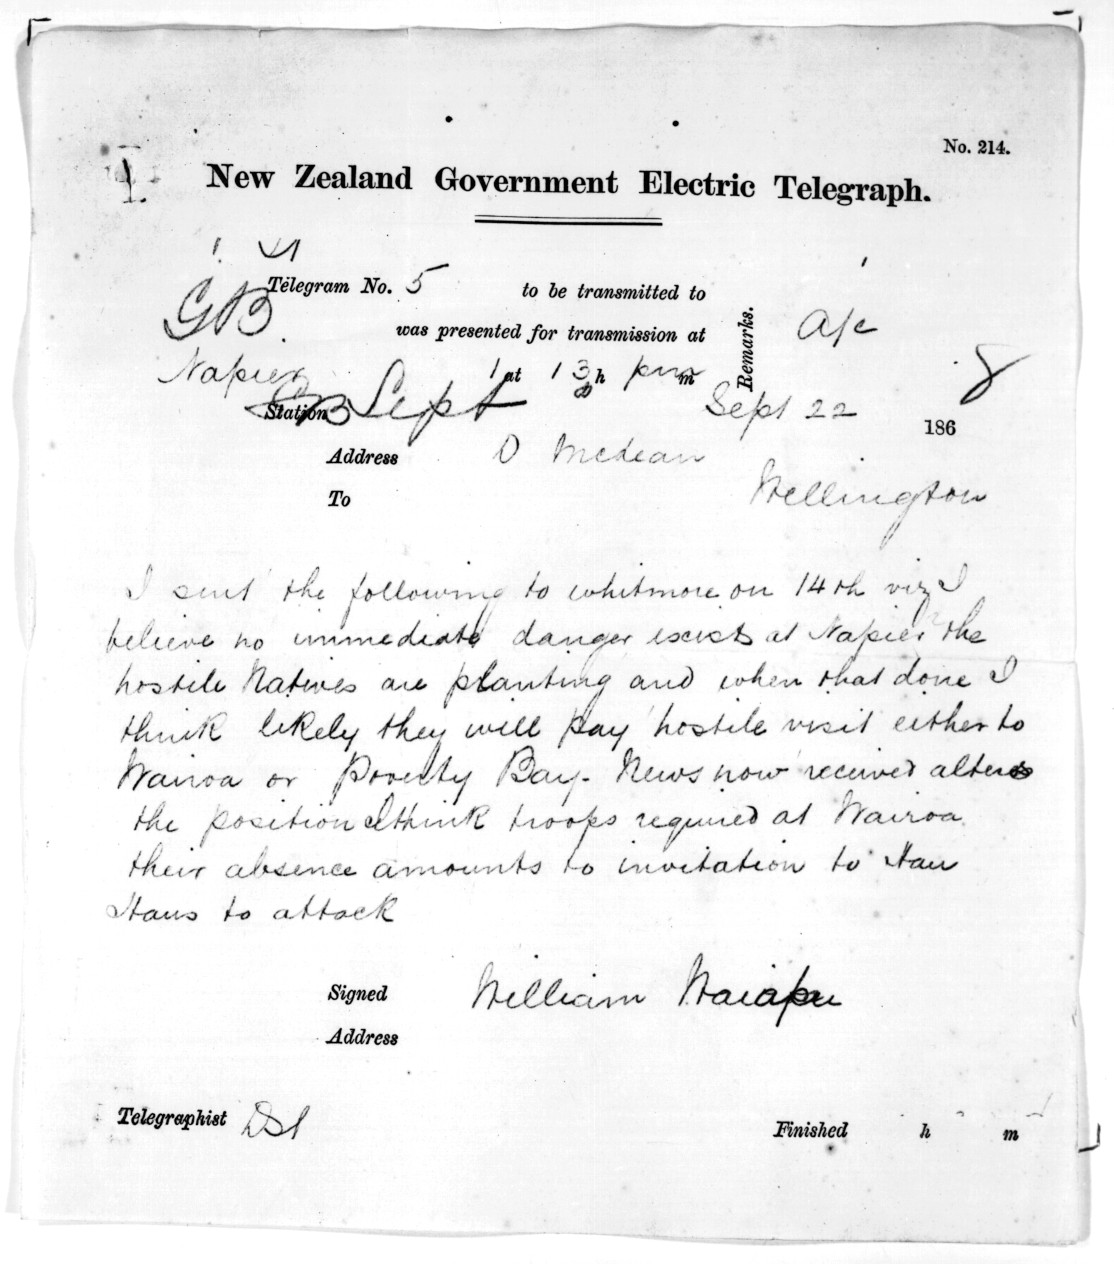 No. 214.
New Zealand Government Electric Telegraph.
Telegram No. 5 to be transmitted to
GB
was presented for transmission at
Remarks.
a/c
Napier 1 at 1 3 h pm m
Station Sept
Sept 22 1868
Address D McLean
To Wellington
I sent the following to whitmore on 14th viz I
believe no immediate danger exists at Napier the
hostile Natives are planting and when that done I
think likely they will pay hostile visit either to
Wairoa or Poverty Bay. News now received alters
the position I think troops required at Wairoa
their absence amounts to invitation to Hau
Haus to attack
Signed William Waiapu
Address
Telegraphist
Finished h m